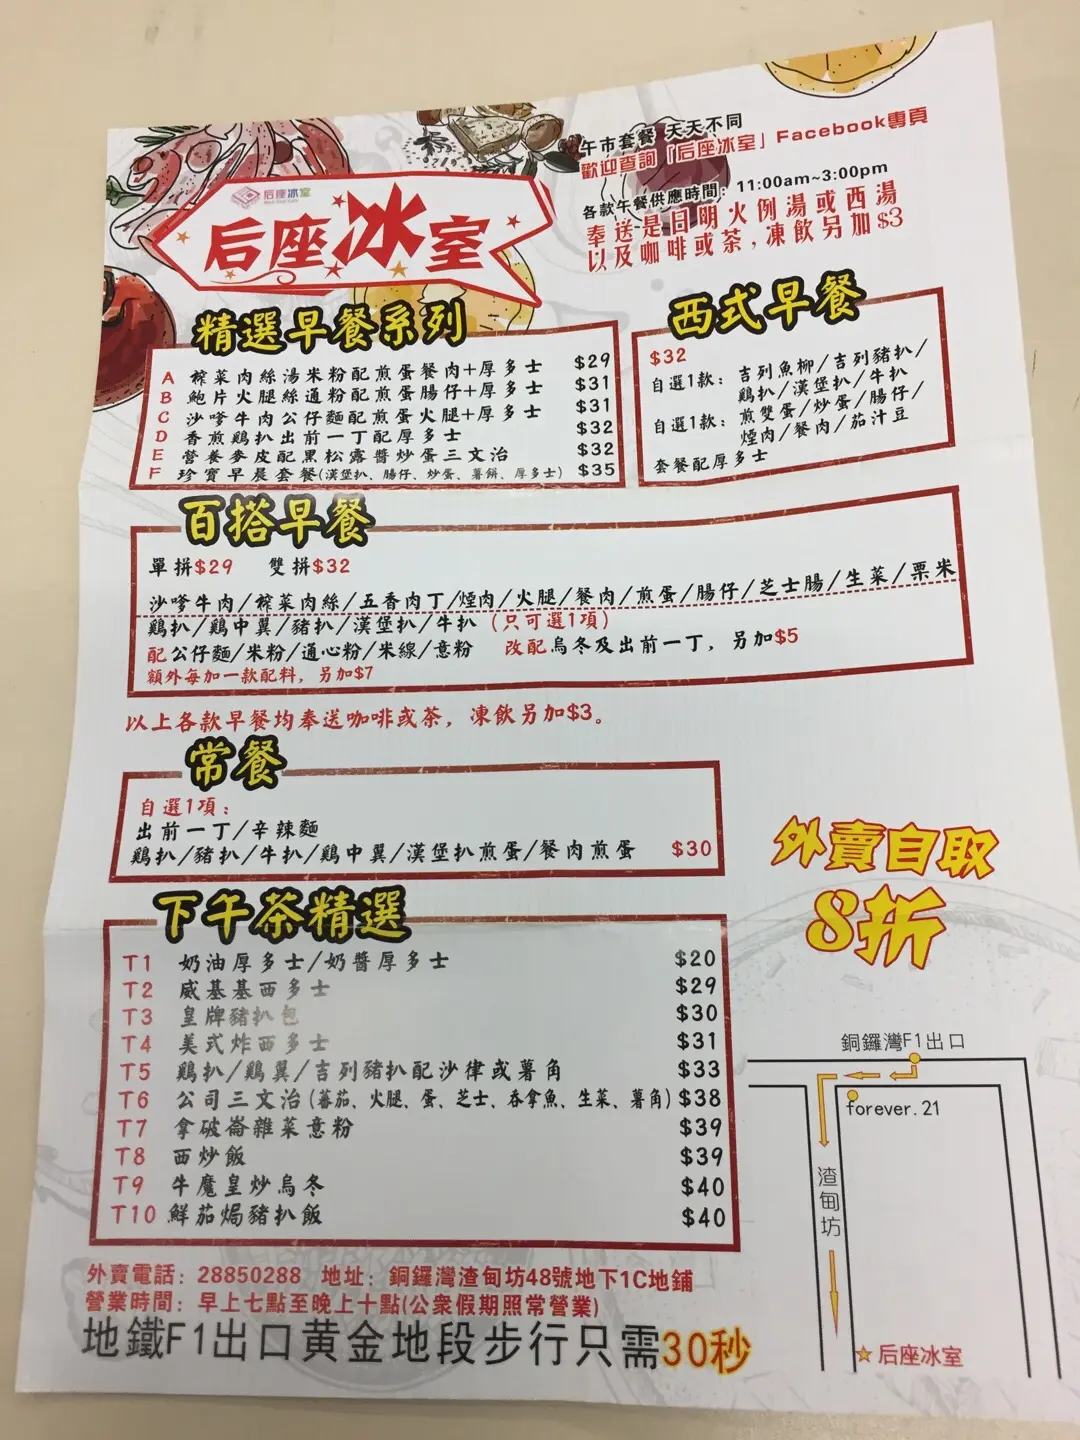 午市套餐 天天不同
歡迎查詢「后座冰室」Facebook專頁
各款午餐供應時間: 11:00am~3:00pm
奉送是日明火例湯或西湯
以及咖啡或茶,凍飲另加$3
后座冰室
后座冰室
精選早餐系列
A 榨菜肉絲湯米粉配煎蛋餐肉+厚多士 $29
B 鮑片火腿絲通粉配煎蛋腸仔+厚多士 $31
C 沙嗲牛肉公仔麵配煎蛋火腿+厚多士 $31
D 香煎鷄扒出前一丁配厚多士 $32
E 營養麥皮配黑松露醬炒蛋三文治 $32
F 珍寶早晨套餐(漢堡扒、腸仔、炒蛋、薯餅、厚多士) $35
西式早餐
$32
自選1款: 吉列魚柳/吉列豬扒/
鷄扒/漢堡扒/牛扒
自選1款: 煎雙蛋/炒蛋/腸仔/
煙肉/餐肉/茄汁豆
套餐配厚多士
百搭早餐
單拼$29 雙拼$32
沙嗲牛肉/榨菜肉絲/五香肉丁/煙肉/火腿/餐肉/煎蛋/腸仔/芝士腸/生菜/粟米
鷄扒/鷄中翼/豬扒/漢堡扒/牛扒 (只可選1項)
配公仔麵/米粉/通心粉/米線/意粉 改配烏冬及出前一丁, 另加$5
額外每加一款配料, 另加$7
以上各款早餐均奉送咖啡或茶, 凍飲另加$3。
常餐
自選1項:
出前一丁/辛辣麵
鷄扒/豬扒/牛扒/鷄中翼/漢堡扒煎蛋/餐肉煎蛋 $30
外賣自取
8折
下午茶精選
T1 奶油厚多士/奶醬厚多士 $20
T2 威基基西多士 $29
T3 皇牌豬扒包 $30
T4 美式炸西多士 $31
T5 鷄扒/鷄翼/吉列豬扒配沙律或薯角 $33
T6 公司三文治(蕃茄、火腿、蛋、芝士、吞拿魚、生菜、薯角) $38
T7 拿破崙雜菜意粉 $39
T8 西炒飯 $39
T9 牛魔皇炒烏冬 $40
T10 鮮茄焗豬扒飯 $40
銅鑼灣F1出口
forever.21
渣甸坊
后座冰室
外賣電話: 28850288 地址: 銅鑼灣渣甸坊48號地下1C地鋪
營業時間: 早上七點至晚上十點(公衆假期照常營業)
地鐵F1出口黄金地段步行只需30秒